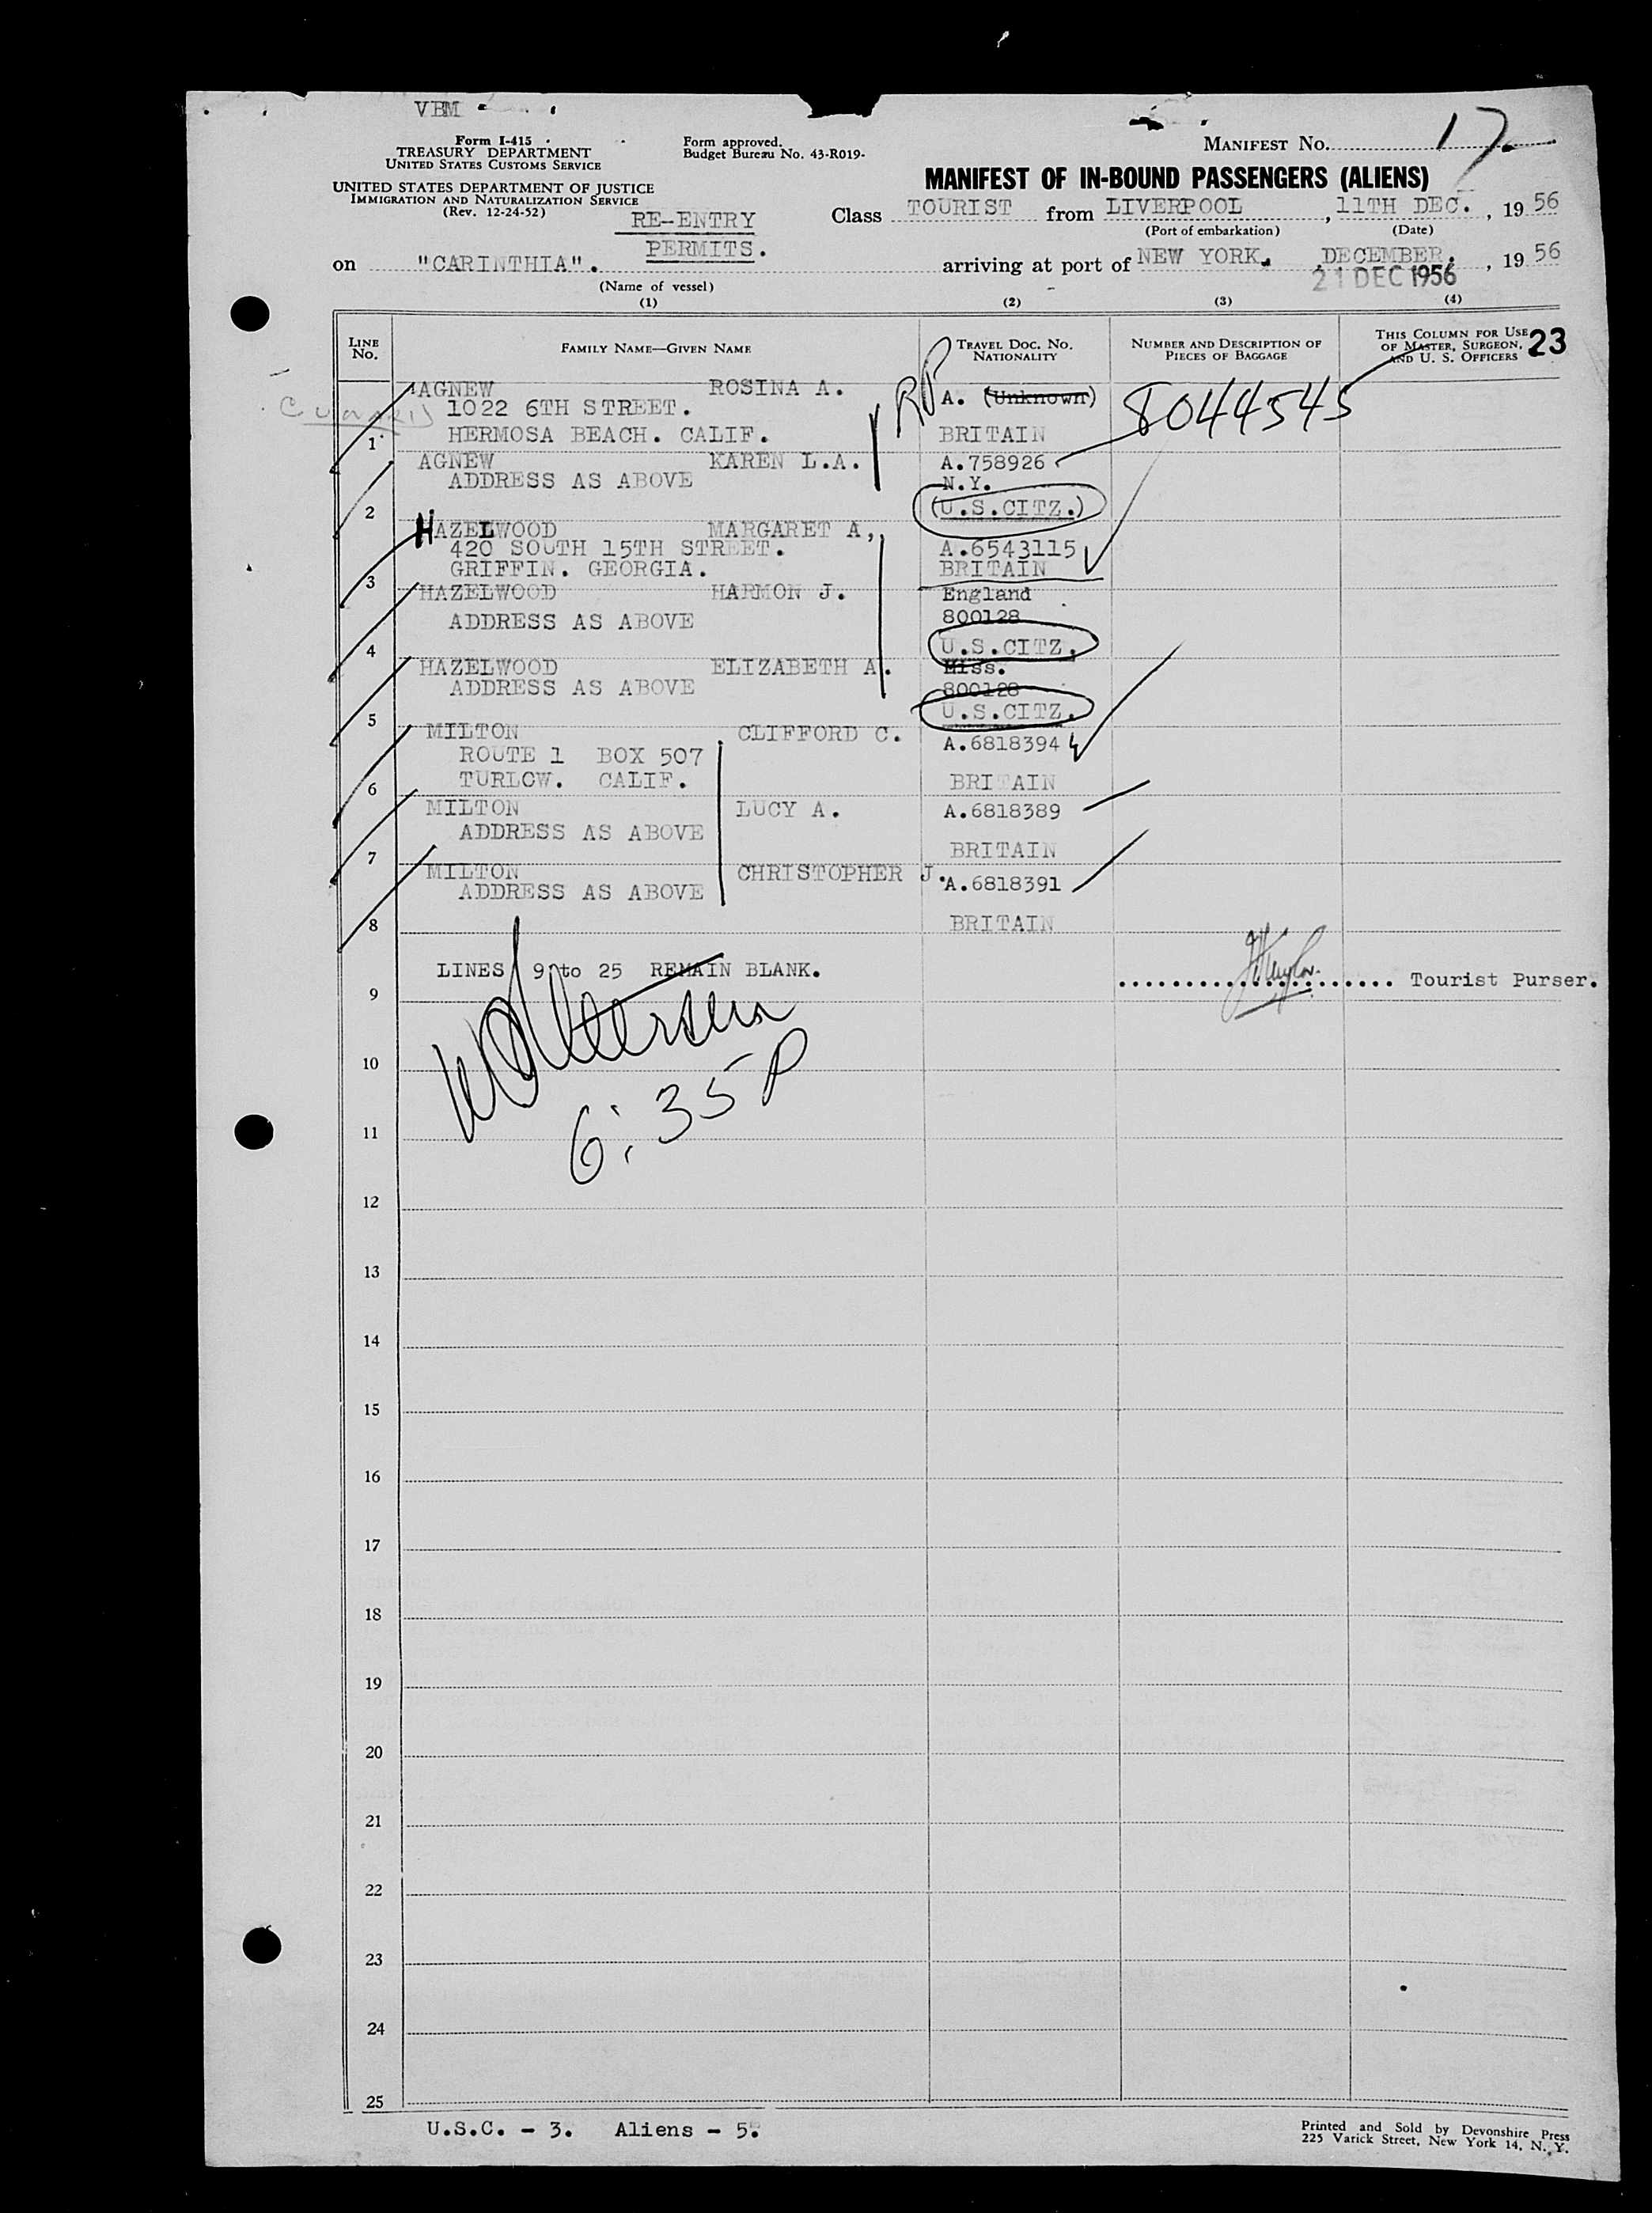 VBM
Form I-415
TREASURY DEPARTMENT
UNITED STATES CUSTOMS SERVICE
Form approved.
Budget Bureau No. 43-R019-
MANIFEST NO. 17
UNITED STATES DEPARTMENT OF JUSTICE
IMMIGRATION AND NATURALIZATION SERVICE
(Rev. 12-24-52)
MANIFEST OF IN-BOUND PASSENGERS (ALIENS)
RE-ENTRY
PERMITS.
Class TOURIST from LIVERPOOL, 11TH DEC., 19 56
(Port of embarkation) (Date)
on "CARINTHIA".
(Name of vessel)
arriving at port of NEW YORK. DECEMBER. , 19 56
21 DEC 1956
(1) (2) (3) (4)
LINE NO.
FAMILY NAME—GIVEN NAME
TRAVEL DOC. NO. NATIONALITY
NUMBER AND DESCRIPTION OF PIECES OF BAGGAGE
THIS COLUMN FOR USE OF MASTER, SURGEON, AND U. S. OFFICERS
23
CUNARD
AGNEW ROSINA A. RP A. (Unknown) 8044545
1022 6TH STREET.
1 HERMOSA BEACH. CALIF. BRITAIN
AGNEW KAREN L.A. A.758926
ADDRESS AS ABOVE N.Y.
2 (U.S.CITZ.)
HAZELWOOD MARGARET A,
420 SOUTH 15TH STREET. A.6543115
3 GRIFFIN. GEORGIA. BRITAIN
HAZELWOOD HARMON J. England
ADDRESS AS ABOVE 800128
4 U.S.CITZ.
HAZELWOOD ELIZABETH A. Miss.
ADDRESS AS ABOVE 800128
5 U.S.CITZ.
MILTON CLIFFORD C. A.6818394
ROUTE 1 BOX 507
6 TURLOW. CALIF. BRITAIN
MILTON LUCY A. A.6818389
ADDRESS AS ABOVE
7 BRITAIN
MILTON CHRISTOPHER J. A.6818391
ADDRESS AS ABOVE
8 BRITAIN
LINES 9 to 25 REMAIN BLANK.
Tourist Purser.
9
10
6:35P
11
12
13
14
15
16
17
18
19
20
21
22
23
24
25
U.S.C. - 3. Aliens - 5.
Printed and Sold by Devonshire Press
225 Varick Street, New York 14, N. Y.